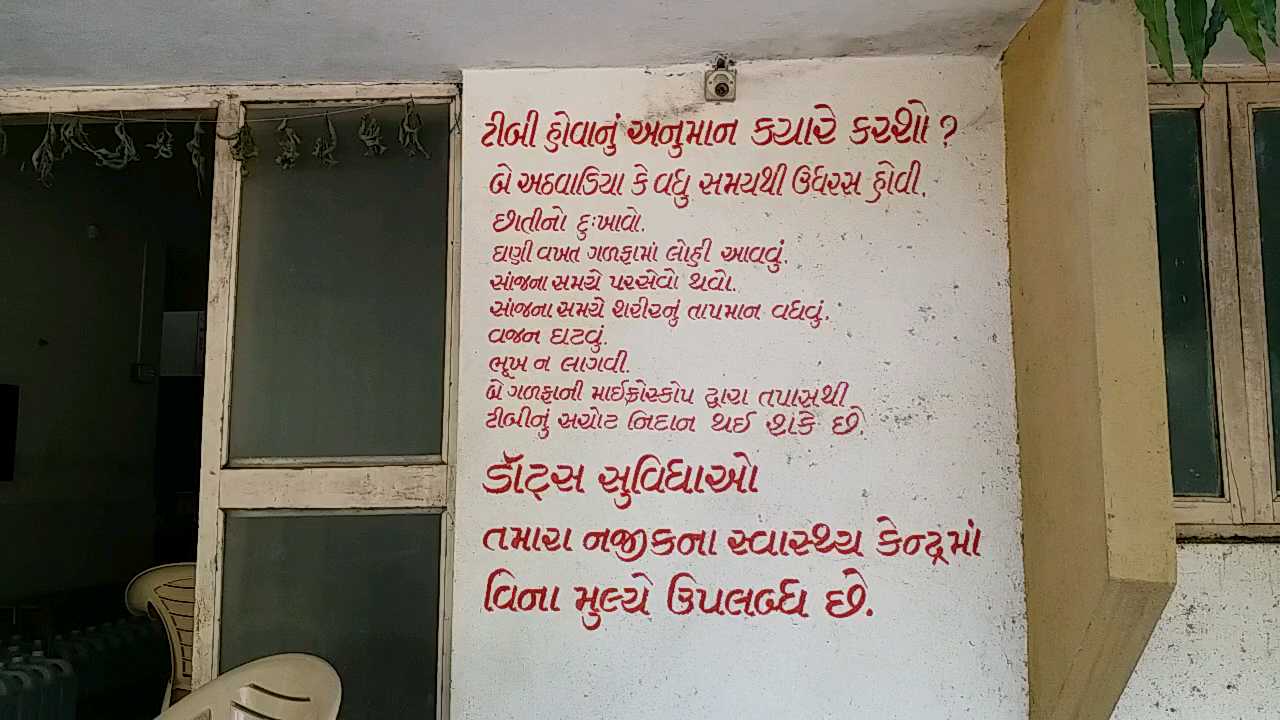 ટીબી હોવાનું અનુમાન કયારે કરશો ?
બે અઠવાડિયા કે વધુ સમયથી ઉધરસ હોવી.
છાતીનો દુઃખાવો.
ઘણી વખત ગળફામાં લોહી આવવું.
સાંજના સમયે પરસેવો થવો.
સાંજના સમયે શરીરનું તાપમાન વધવું.
વજન ઘટવું.
ભૂખ ન લાગવી.
બે ગળફાની માઈક્રોસ્કોપ દ્વારા તપાસથી
ટીબીનું સચોટ નિદાન થઈ શકે છે.
ડૉટ્સ સુવિધાઓ
તમારા નજીકના સ્વાસ્થ્ય કેન્દ્રમાં
વિના મુલ્યે ઉપલબ્ધ છે.